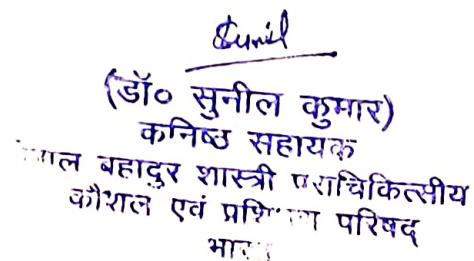 Sunil
(डॉ० सुनील कुमार)
कनिष्ठ सहायक
बहादुर शास्त्री पराचिकित्सीय
कौशल एवं परिषद